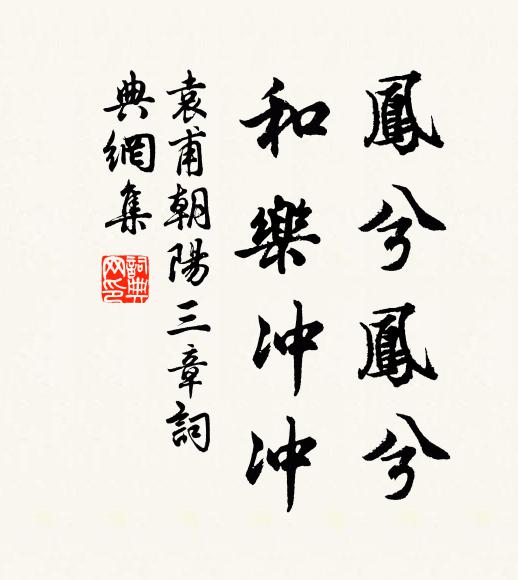 鳳兮鳳兮
和樂沖沖
袁甫朝陽三章詞
典網集
詞典網印